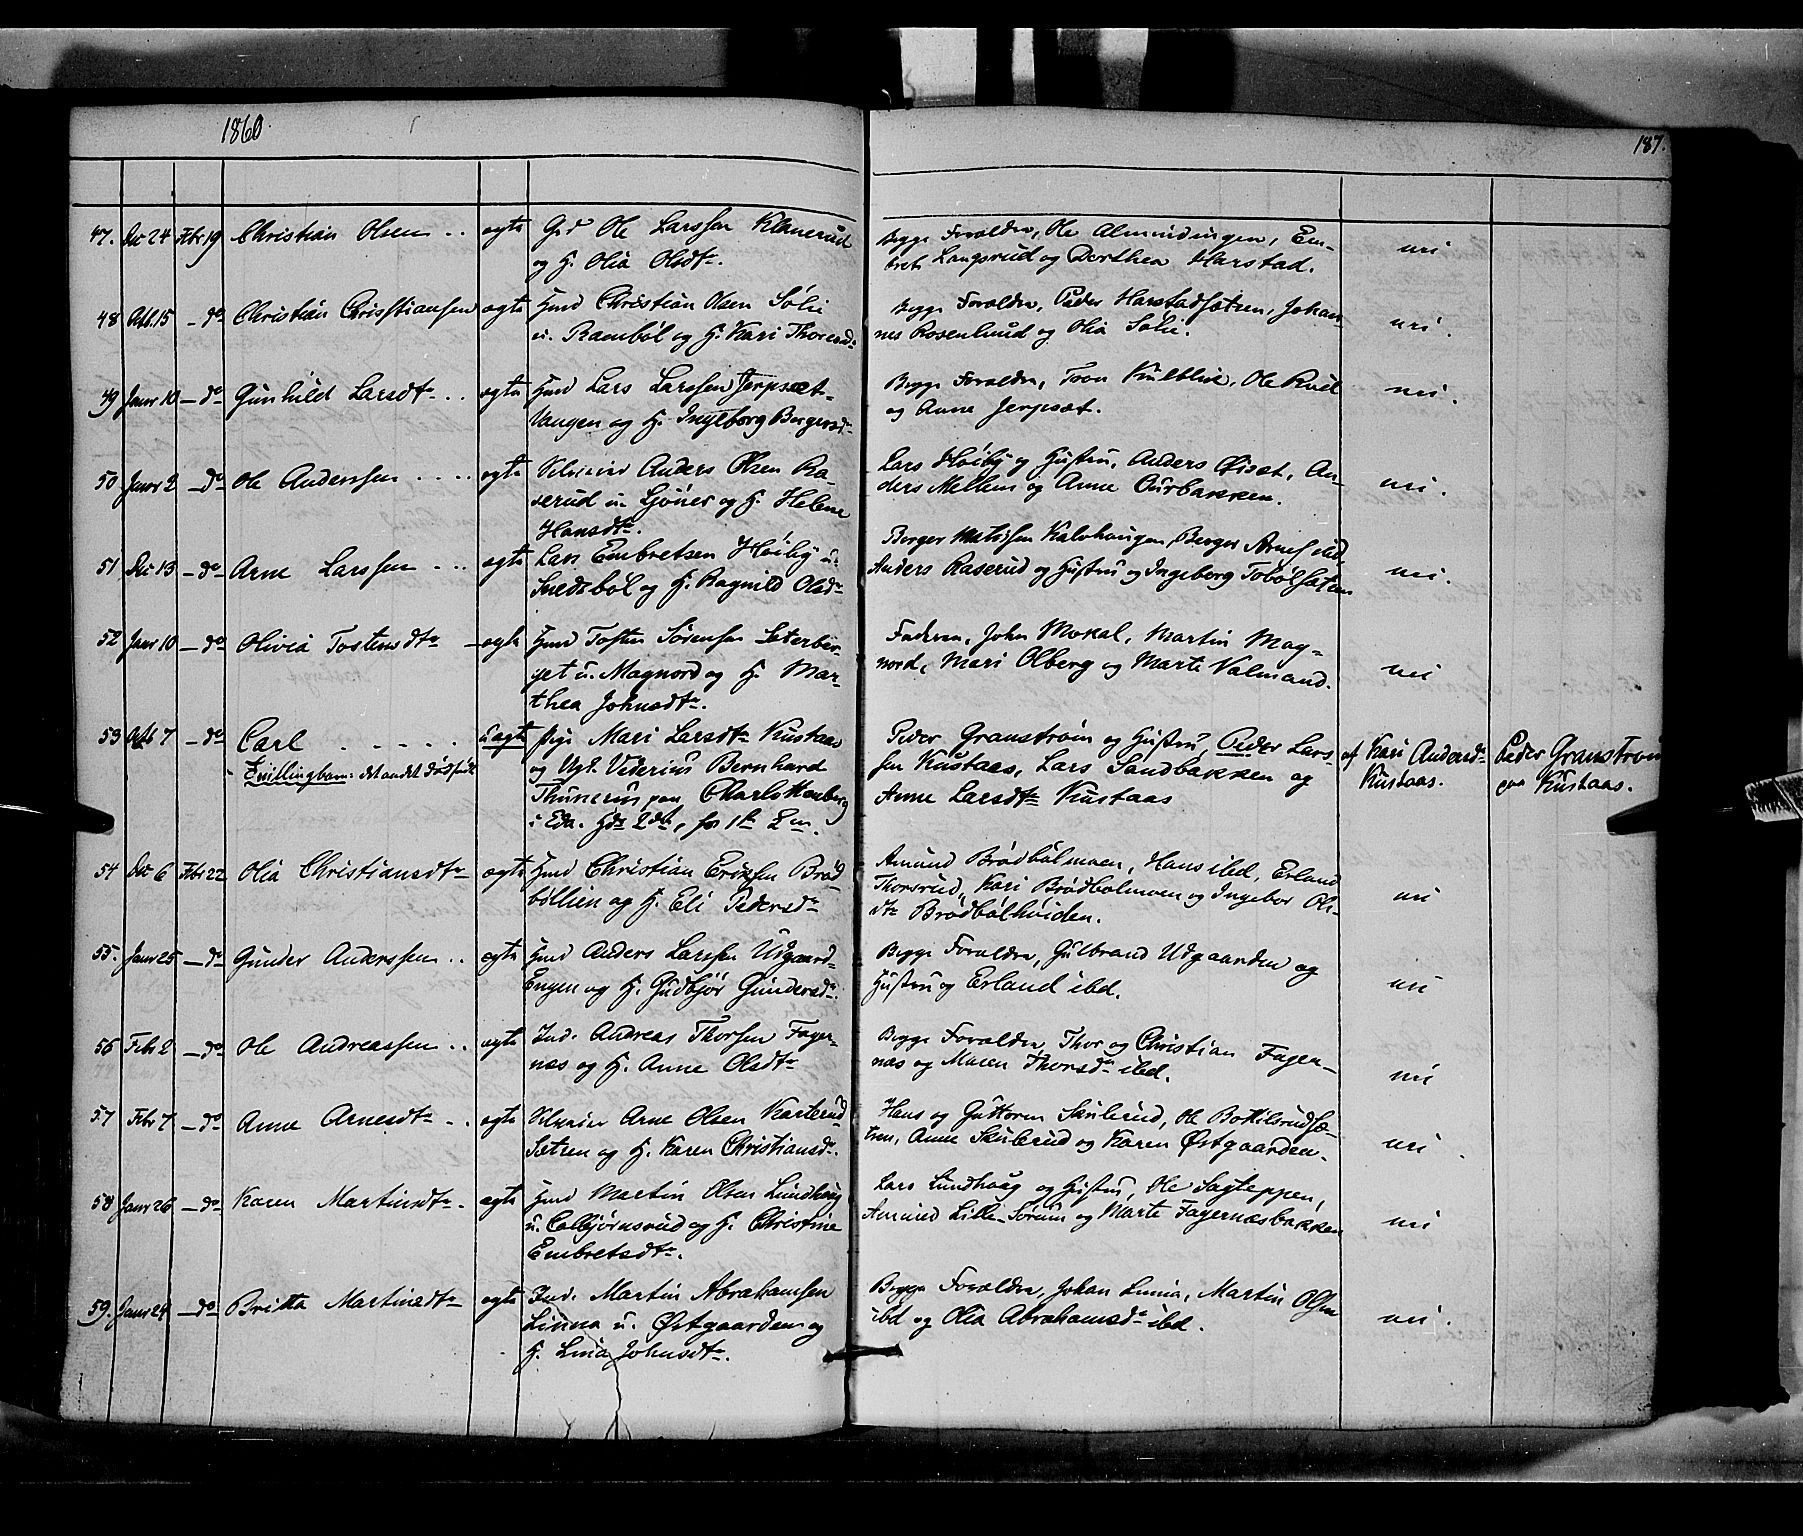 1860
187.
47. Dec 24 Febr 19 Christian Olsen . . ægte Grd Ole Larssen Klanerud
og H. Olia Olsdtr.
Begge Forældre, Ole Almindingen, Em-
bret Langsrud og Dorthea Harstad.
nei
48 Oct. 15 – do Christian Christiansen ægte Hmd Christian Olsen Sølie
u. Rambøl og H. Kari Thoresdr
Begge Forældre, Peder Harstadsætren, Johan-
nes Rosenlund og Olia Sølie.
nei.
49 Janr 10 – do Gunhild Larsdtr . . ægte Hmd Lars Larssen Jerpsæt-
vangen og H. Ingeborg Bergersdr
Begge Forældre, Tron Kulblik, Ole
og Anne Jerpsæt.
nei.
50 Janr 2 – do Ole Anderssen . . . . ægte Selveier Anders Olsen Ra-
serud u. Sjøner og H. Helene
Hansdtr.
Lars Høiby og Hustru, Anders Øisæt, An-
ders Mellem og Anne Ourbakken.
nei.
51 Dec 13 – do Arne Larssen . . . ægte Lars Embretsen Høiby u.
og H. Ragnild Olsdr
Berger Matissen Kalvhaugen, Berger Arnes. ibd,
Anders Raserud og Hustru og Ingeborg Tobølsætren
nei.
52 Janr 10 – do Olivia Tostensdtr – ægte Hmd Tosten Sørensen Sæterber-
get u. Magnor og H. Mar-
thea Johnsdtr.
Faderen, John Mokal, Martin Mag-
nord, Mari Olberg og Marte Valmand.
nei
53 Oct 7 – do Carl . . . . . Uægte Pige Mari Larsdtr Kustaas
Tvillingbarn: det andet dødfødt og Ugk. Bernhard
paa Charlottenberg
i Eda. Hds 2det, hs 1ste Lm.
Peder Granstrøm og Hustru, Peder Lars-
sen Kustaas, Lars Sandbakken og
Anne Larsdtr Kustaas
af Kari Andersdr
Kustaas.
Peder Granstrøm
paa Kustaas.
54 Dec 6 Febr 22 Olia Christiansdtr ægte Hmd Christian Eriksen Brød-
bøllien og H. Eli Pedersdr
Amund Brødbølmoen, Hans ibd, Erland
Thorsrud, Kari Brødbølmoen og Ingebor Ols-
dtr Brødbølhøiden.
nei
55. Janr 25 – do Gunder Anderssen . . ægte Hmd Anders Larssen Udgaard-
Engen og H. Gudbjør Gundersdr.
Begge Forældre, Gulbrand Udgaarden og
Hustru og Erland ibd.
nei
56 Febr 2 – do Ole Andreassen . . ægte Ind. Andreas Thorsen Fager-
næs og H. Anne Olsdtr
Begge Forældre, Thor og Christian Fager-
næs og Maren Thorsdr ibd.
nei
57 Febr 7 – do Anne Arnesdtr . . ægte Selveier Arne Olsen Karterud-
Sætren og H. Karen Christiansdr.
Hans og Guttorm Skulerud, Ole Bottilsrudsæ-
tren, Anne Skulerud og Karen Østgaarden.
nei.
58 Janr 26 – do Karen Martinsdtr . ægte Hmd Martin Olsen Lundhaug
u. Colbjørnsrud og H. Christine
Embretsdtr.
Lars Lundhaug og Hustru, Ole Sagteppen,
Amund Lille-Sørum og Marte Fagernæsbakken
nei
59. Janr 24 – do Britta Martinsdtr ægte Ind. Martin Abrahamsen
Linna u. Østgaarden og
H. Lina Johnsdtr.
Begge Forældre, Johan Linna, Martin Olsen
ibd og Olia Abrahamsdr ibd.
nei.